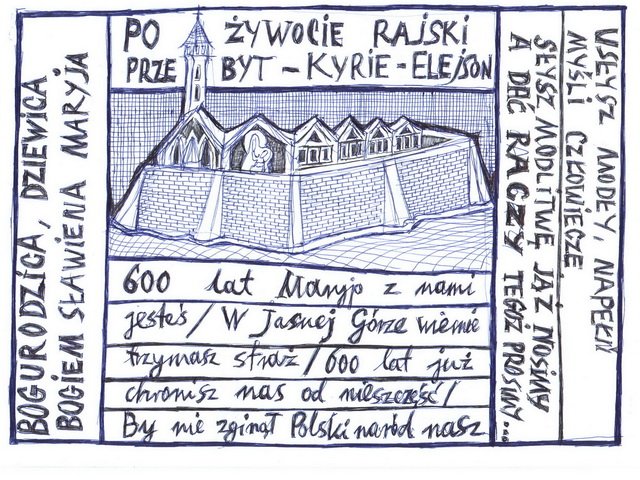 BOGURODZICA, DZIEWICA,
BOGIEM SŁAWIENA MARYJA
PO ŻYWOCIE RAJSKI
PRZEBYT – KYRIE – ELEJSON
600 lat Maryjo z nami
jesteś / W Jasnej Górze wiernie
trzymasz straż / 600 lat już
chronisz nas od nieszczęść /
By nie zginął Polski naród nasz
USŁYSZ MODŁY, NAPEŁŃ
MYŚLI CZŁOWIECZE,
SŁYSZ MODLITWĘ, JĄŻ NOSIMY
A DAĆ RACZY TEGIŻ PROSIMY...